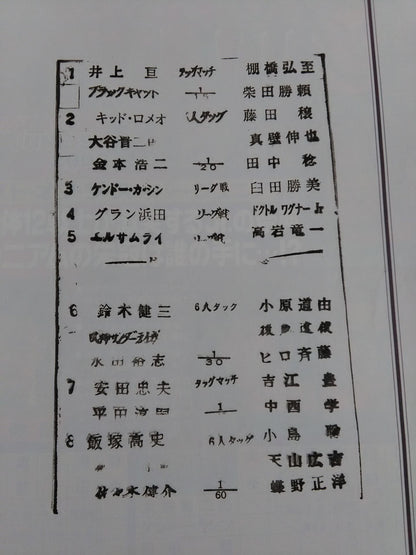 1 井上亘 タッグマッチ 棚橋弘至
ブラックキャット 1/ 柴田勝頼
2 キッド・ロメオ 6人タッグ 藤田穣
大谷晋二郎 真壁伸也
金本浩二 1/20 田中稔
3 ケンドー・カシン リーグ戦 臼田勝美
4 グラン浜田 リーグ戦 ドクトルワグナーJr
5 エルサムライ リーグ戦 高岩竜一
6 鈴木健三 6人タッグ 小原道由
獣神サンダーライガー 後藤達俊
永田裕志 1/30 ヒロ斉藤
7 安田忠夫 タッグマッチ 吉江豊
平田淳嗣 1/ 中西学
8 飯塚高史 6人タッグ 小島聡
天山広吉
佐々木健介 1/60 蝶野正洋